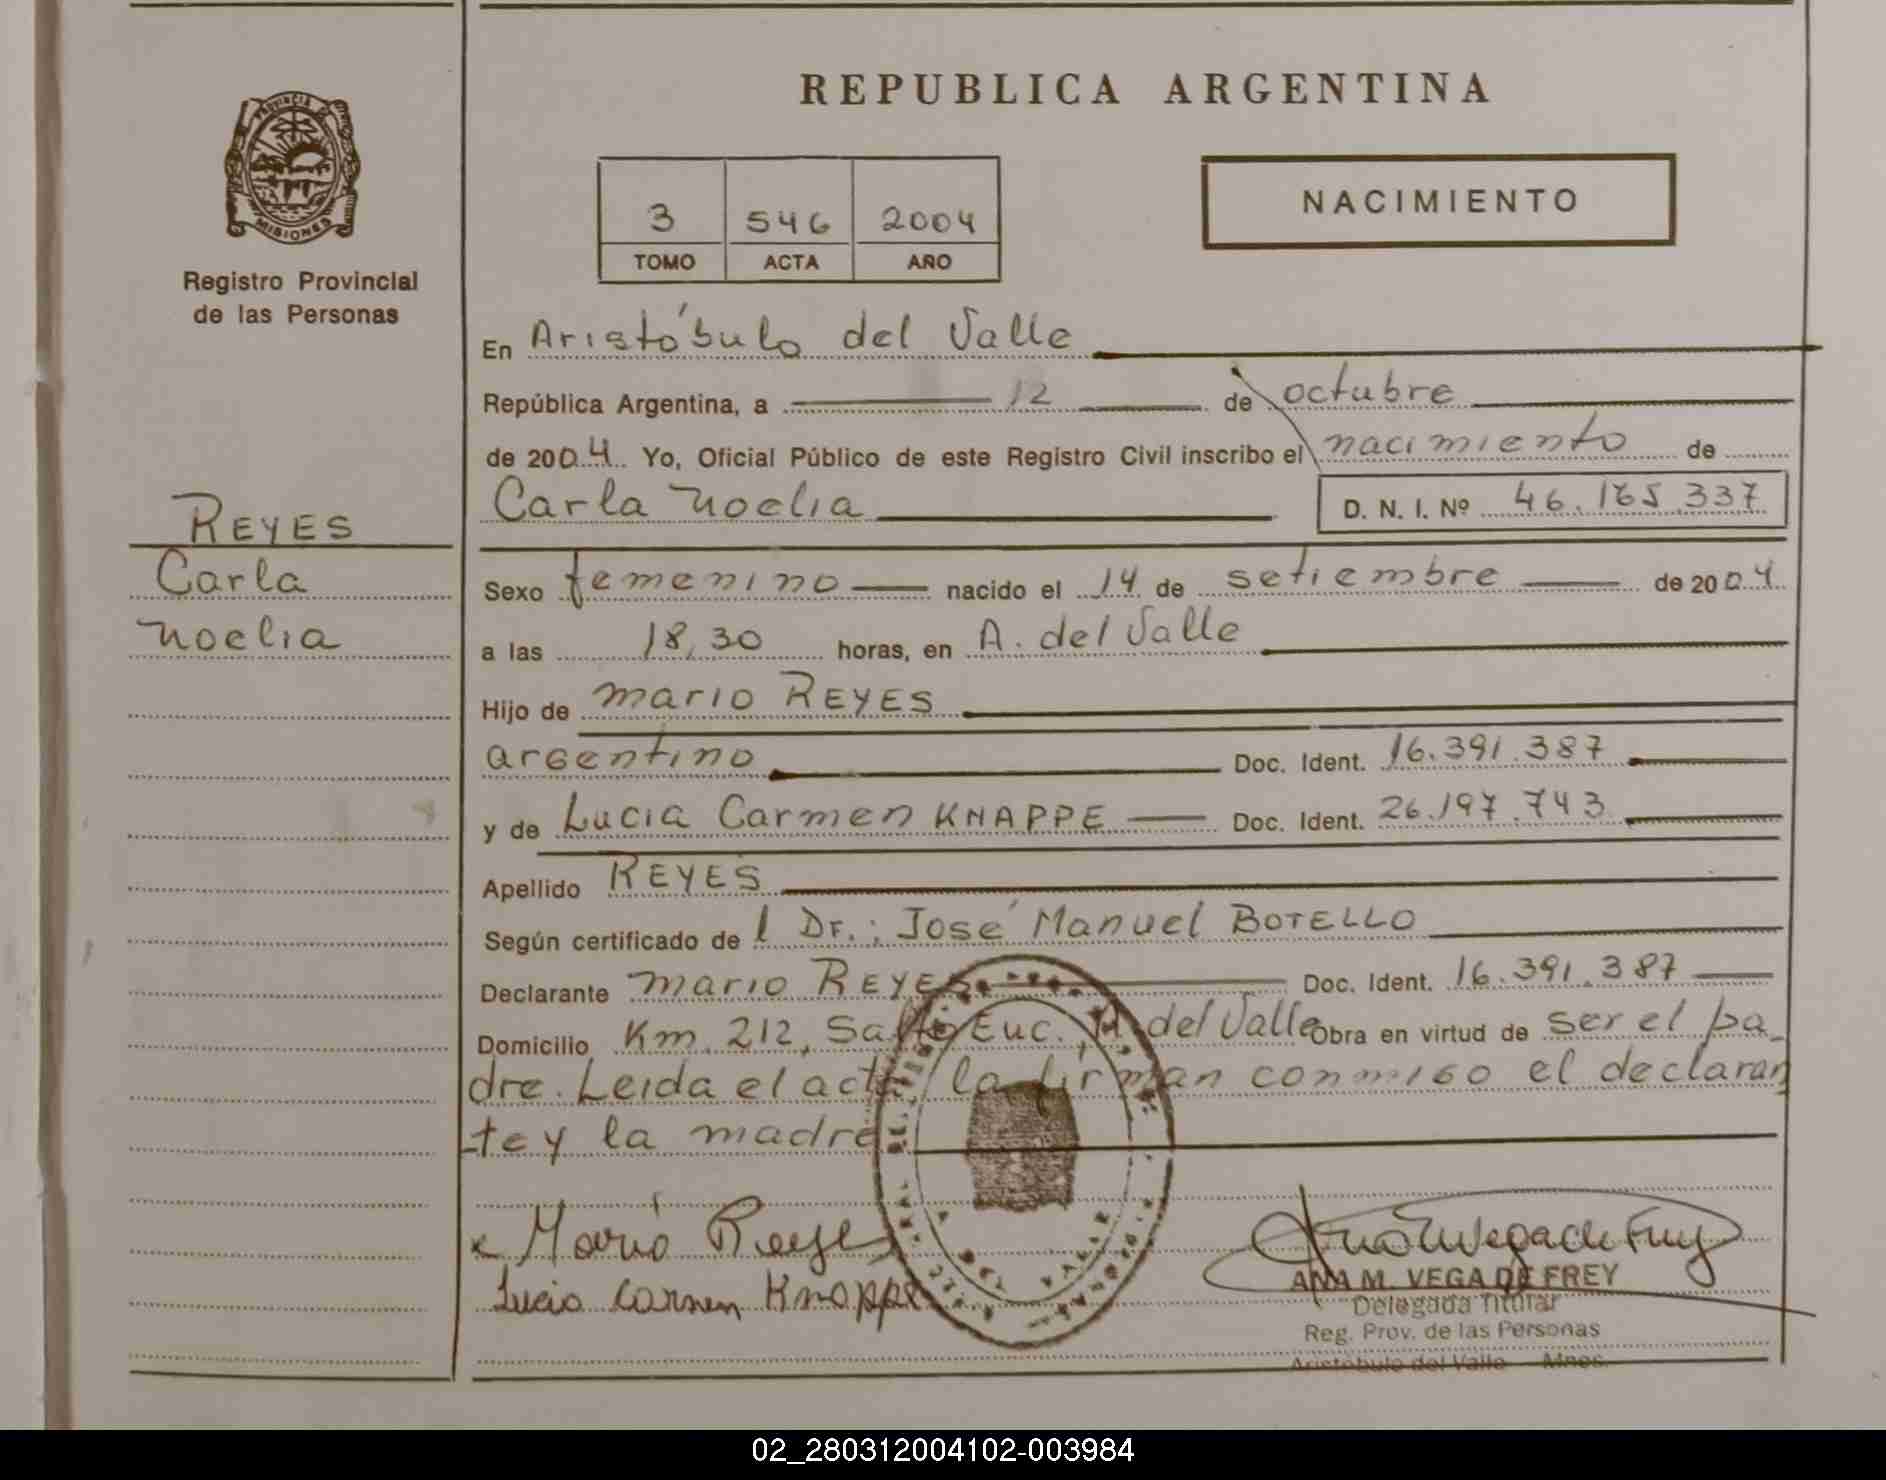 REPUBLICA ARGENTINA
PROVINCIA DE
MISIONES
Registro Provincial
de las Personas
3 546 2004
TOMO ACTA AÑO
NACIMIENTO
En Aristóbulo del Valle
República Argentina, a 12 de octubre
de 2004. Yo, Oficial Público de este Registro Civil inscribo el nacimiento de
Carla Noelia D. N. I. Nº 46.165.337
REYES
Carla
Noelia
Sexo femenino nacido el 14 de setiembre de 2004.
a las 18,30 horas, en A. del Valle
Hijo de Mario REYES
argentino Doc. Ident. 16.391.387
y de Lucia Carmen KNAPPE Doc. Ident. 26.197.743
Apellido REYES
Según certificado del Dr.: José Manuel BOTELLO
Declarante Mario REYES Doc. Ident. 16.391.387
Domicilio Km. 212, Salto Enc., A. del Valle Obra en virtud de ser el pa_
dre. Leida el acta la firman conmigo el declaran
te y la madre
x Mario Reyes
Lucia Carmen Knappe
ANA M. VEGA DE FREY
Delegada Titular
Reg. Prov. de las Personas
Aristóbulo del Valle - Mnes.
02_280312004102-003984